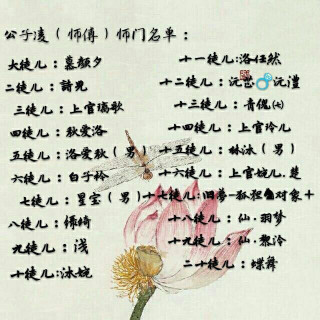 公子凌（师傅）师门名单：
大徒儿：慕颜夕
二徒儿：請
三徒儿：上官璃歌
四徒儿：狄爱洛
五徒儿：洛爱狄（男）
六徒儿：白子柃
七徒儿：星宝（男）
八徒儿：绮
九徒儿：浅
十徒儿：冰婉
十一徒儿：洛任然
十二徒儿：沅芷💍沅澧
十三徒儿：青倾㈦
十四徒儿：上官玲儿
十五徒儿：林冰（男）
十六徒儿：上官婉儿.楚
十七徒儿：旧梦-狐狸 对象+
十八徒儿：仙·羽梦
十九徒儿：仙·黎泠
二十徒儿：蝶舞